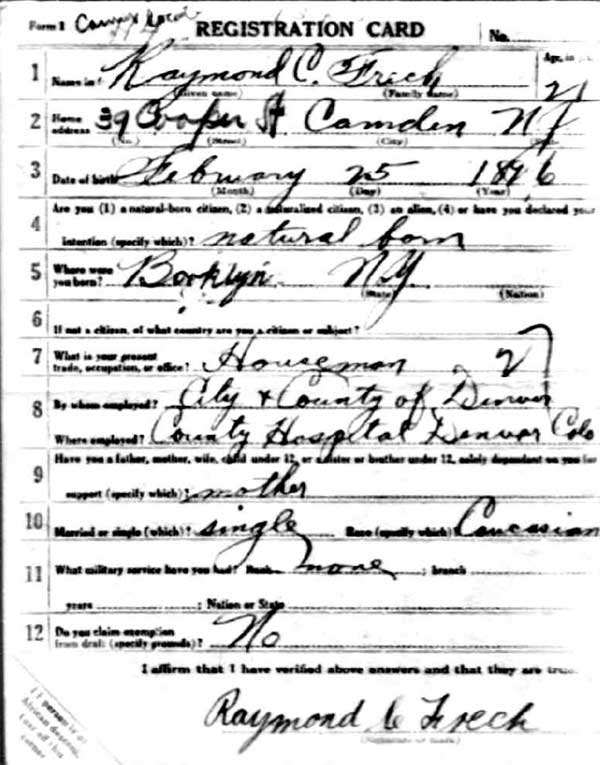 Form 1 REGISTRATION CARD No.
1 Name in Raymond C. Frech Age, in 21
(Given name) (Family name)
2 Home address 39 Cooper St Camden NJ
(No.) (Street) (City)
3 Date of birth February 25 1896
(Month) (Day) (Year)
4 Are you (1) a natural-born citizen, (2) a naturalized citizen, (3) an alien, (4) or have you declared your
intention (specify which)? natural born
5 Where were you born? Booklyn N.Y.
(State) (Nation)
6 If not a citizen, of what country are you a citizen or subject?
7 What is your present trade, occupation, or office? Houseman
8 By whom employed? City & County of Denver
Where employed? County Hospital Denver Colo
9 Have you a father, mother, wife, child under 12, or a sister or brother under 12, solely dependent on you for
support (specify which)? mother
10 Married or single (which)? single Race (specify which)? Caucasian
11 What military service have you had? Rank none ; branch
years ; Nation or State
12 Do you claim exemption from draft (specify grounds)? No
I affirm that I have verified above answers and that they are true.
Raymond C Frech
(Signature or mark)
If person is of
African descent,
tear off this
corner